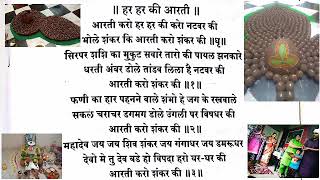 ॥ हर हर की आरती ॥
आरती करो हर हर की करो नटवर की
भोले शंकर कि आरती करो शंकर की ॥धृ॥
सिरपर शशि का मुकुट सवारे तारो की पायल झनकारे
धरती अंबर डोले तांडव लिला है नटवर की
आरती करो शंकर की ॥१॥
फणी का हार पहनने वाले शंभो हे जग के रखवाले
सकल चराचर डगमग डोले उंगली पर विषधर की
आरती करो शंकर की ॥२॥
महादेव जय जय शिव शंकर जय गंगाधर जय डमरूधर
देवो मे तु देव बडे हो बिपदा हरो घर-घर की
आरती करो शंकर की ॥३॥